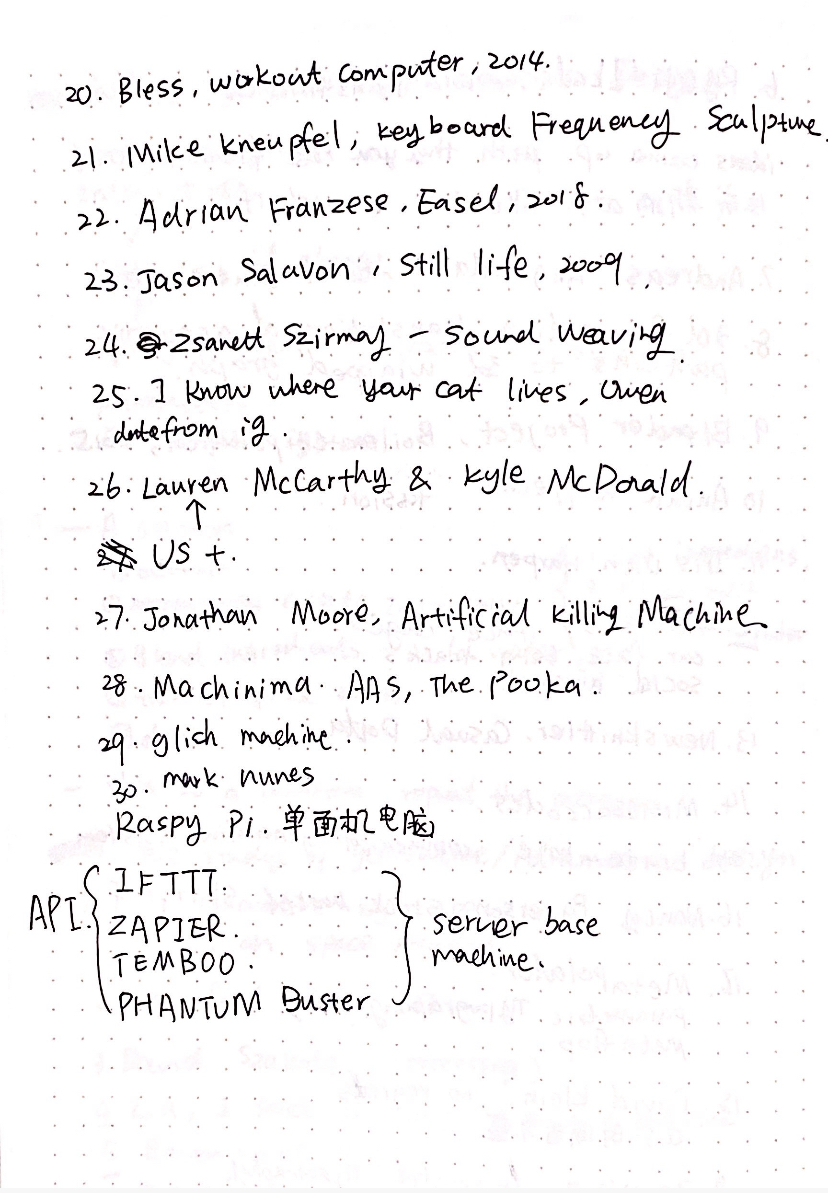 20. Bless, workout computer, 2014.
21. Mike kneupfel, keyboard Frequency Sculpture
22. Adrian Franzese, Easel, 2018.
23. Jason Salavon, Still life, 2009.
24. Zsanett Szirmay - Sound Weaving.
25. I know where your cat lives, Owen
date from ig.
26. Lauren McCarthy & Kyle McDonald.
↑
US +.
27. Jonathan Moore, Artificial Killing Machine
28. Machinima. AAS, The Pooka.
29. glich machine.
30. mark nunes
Raspy Pi. 单面机电脑
API. { IFTTT.
ZAPIER.
TEMBOO.
PHANTUM Buster } server base
machine.